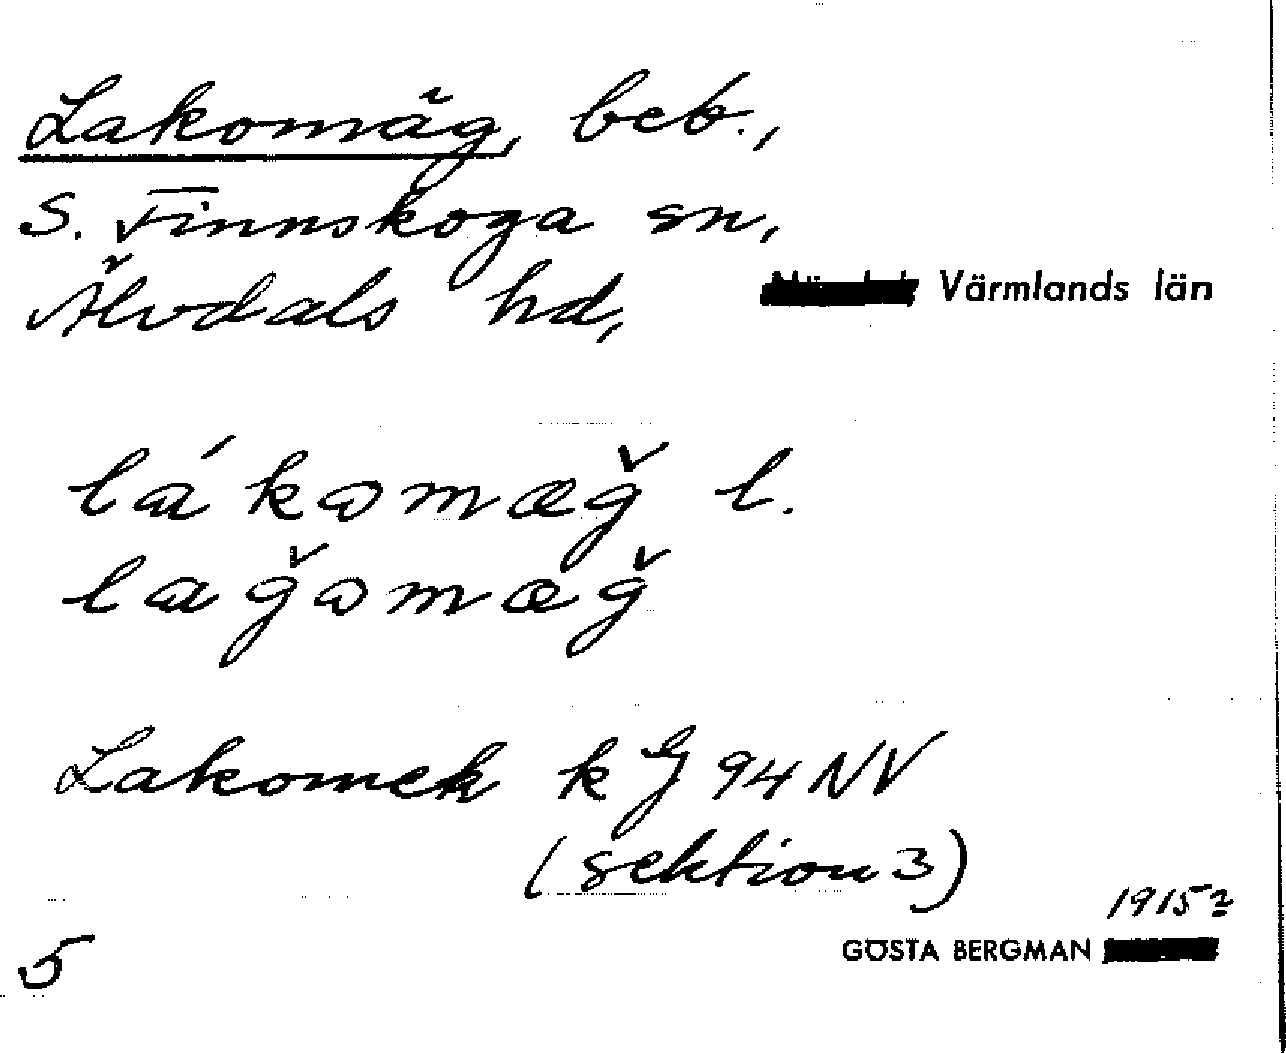 Lakomäg, beb.,
S. Finnskoga sn,
Älvdals hd,
Värmlands län
lákɷmæğ l.
lağɷmæğ
Lakomek k G 94 NV
(sektion 3)
1915
GÖSTA BERGMAN
5